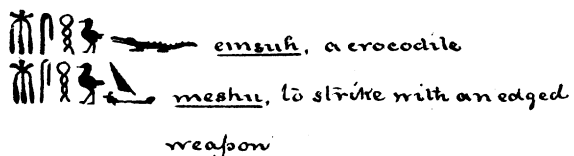 𓄟𓋴𓎛𓅱𓆊 emsuh, a crocodile
𓄟𓋴𓎛𓅱 meshu, to strike with an edged
weapon